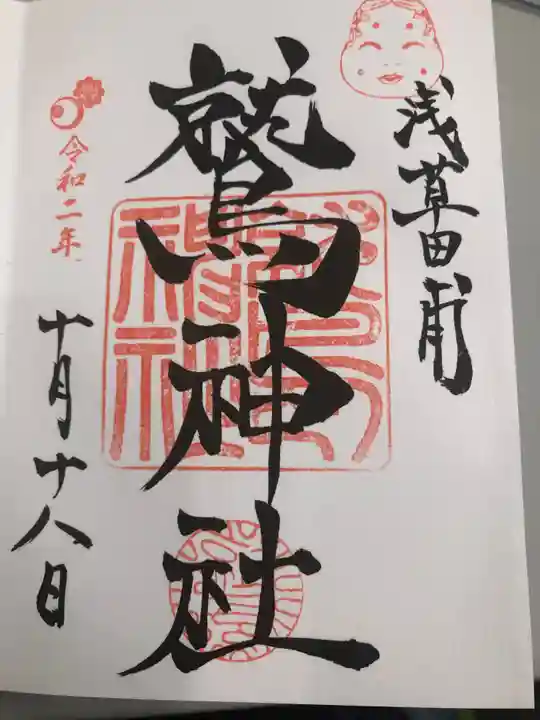 浅草田甫
鷲神社
令和二年
十月十八日